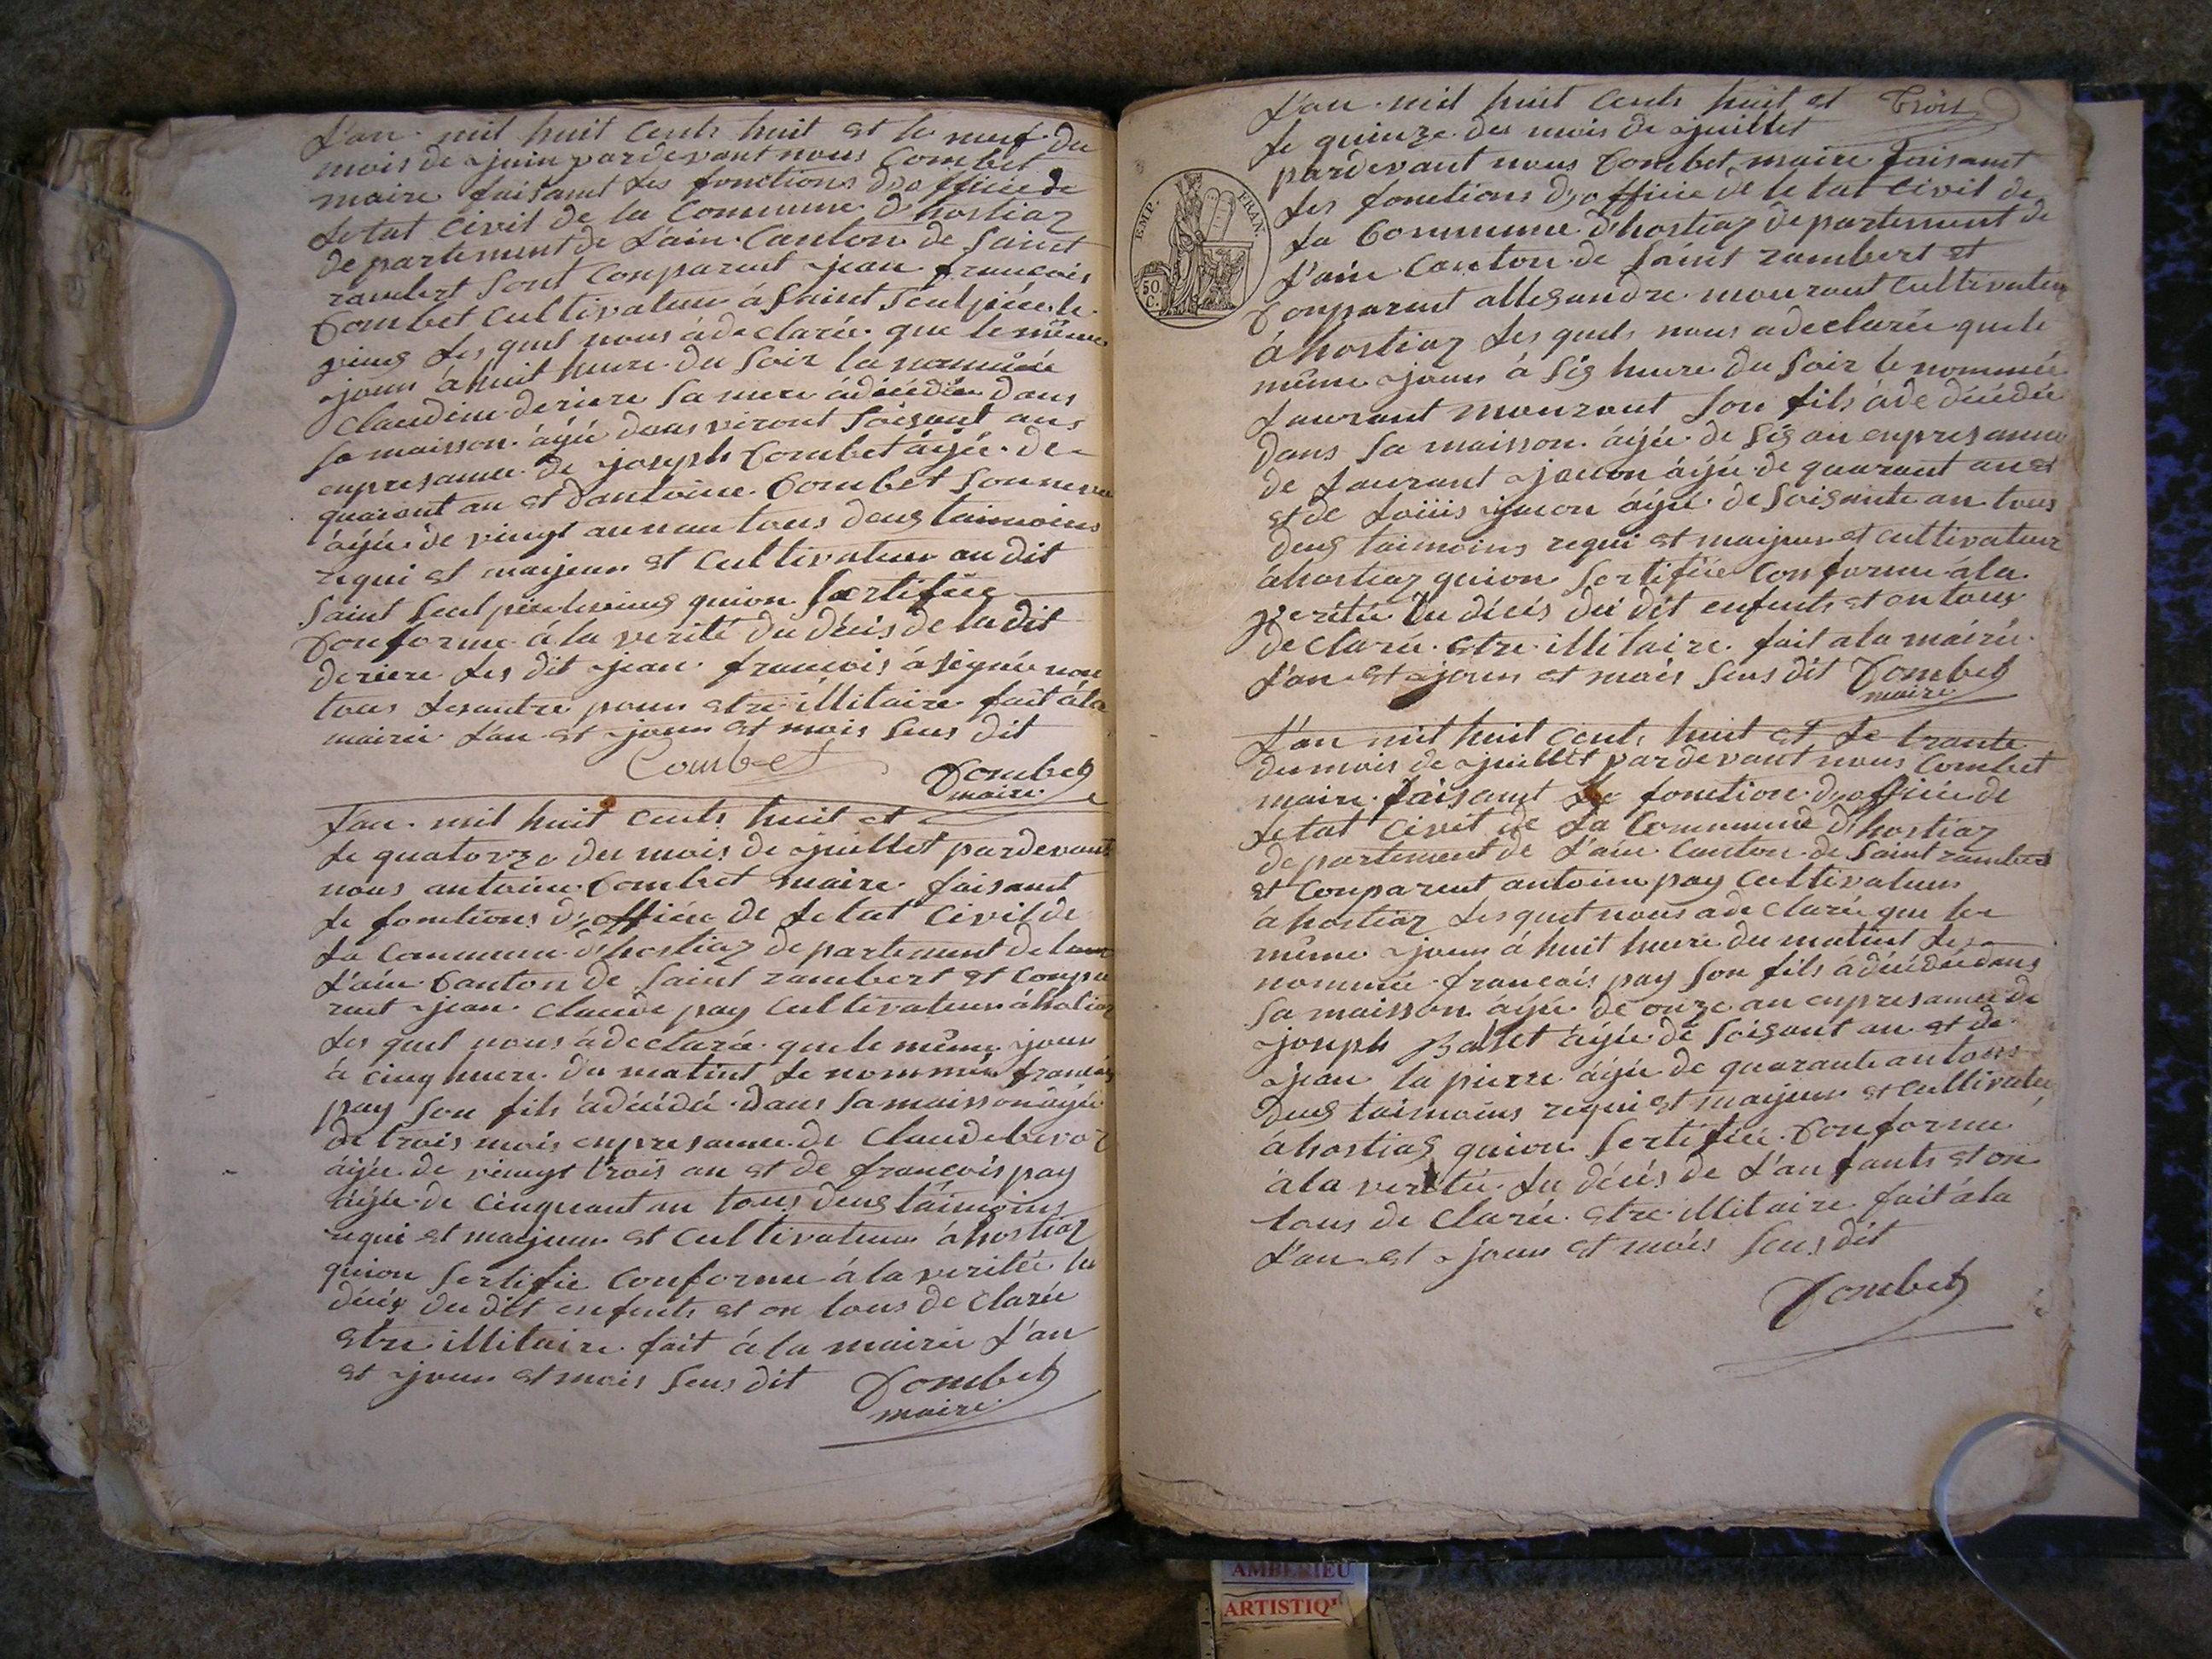 L'an mil huit cents huit et le neuf du
mois de juin pardevant nous Combet
maire faisant les fonctions d'officie de
letat Civil de la Commune d'hostiaz
departement de L'ain Canton de Saint
rambert sont Conparut jean francois
Combet Cultivateur á Saint Sculpice le
vieus les quel nous á declarée que le même
jour á huit heure du Soir la nommée
Claudine deriere Sa mere á décédée dans
sa maisson áijée soisant ans
enpresanne de joseph Combet áijée de
quarant an et dantoine Combet Son neveu
áijée de vingt tous deus taimoins
requi et maijeur et Cultivateur au dit
Saint Sculpice levieus quion Sertifiée
Conforme á la verité du décis de la dit
deriere les dit jean francois á signée non
tous lesautre pour etre illitaire fait ála
mairie L'an et jour et mois Sus dit
Combet
Combet
maire
L'an mil huit cents huit et
le quatorze du mois de juillet pardevant
nous antoine Combet maire faisant
le fonctions d'officie de letat Civil de
la Commune d'hostiaz departement de
L'ain Canton de Saint rambert et Conpa
rut jean Claude pay Cultivateur
les quel nous á declarée que le même jour
á cinq heure du matint le nommée francois
pay Son fils ádécédé dans Sa maisson áijée
de trois mois enpresanne de Claude
áijée de vingt trois an et de francois pay
áijée de Cinquant an tous deus taimoins
requi et maijeur et Cultivateur áhostiaz
quion Sertifie Conforme á la veritée le
décis du dit enfents et on tous de Clarée
etre illitaire fait á la mairie L'an
et jour et mois Sus dit Combet
maire
L'an mil huit cents huit et Trois
le quinze du mois de juillet
pardevant nous Combet maire faisant
les fonctions d'officie de letat Civil de
la Commune d'hostiaz departement de
L'ain Canton de Saint rambert et
Conparut allesandre mourant Cultivateur
á hostiaz les quels nous a declarée que le
même jour á Sis heure du Soir le nommée
Laurant mourant Son fils á de décédée
dans Sa maisson áijée de Sis an enpresanne
de Laurant áijée de quarant an et
et de Loüis áijée de Soisante an tous
deus taimoins requi et maijeur et Cultivateur
áhostiaz quion Sertifiée Conforme ala
veritée du décis du dit enfents et on tous
declarée etre illitaire fait ala mairie
L'an et jour et mois Sus dit Combet
maire
L'an mil huit cents huit et le trante
du mois de juillet pardevant nous Combet
maire faisant fonction d'officie de
letat Civil de La Commune d'hostiaz
departement de L'ain Canton de Saint rambert
et Conparut antoine pay Cultivateur
á hostiaz les quel nous a de Clarée que le
même jour á huit heure du matint le
nommée francois pay Son fils á décédée dans
Sa maisson áijée de onze an enpresanne de
joseph Ballet áijée de Soisant an et de
jean la pierre áijée de quarante an tous
deus taimoins requi et maijeur et Cultivateu
áhostias quion Sertifiée Conforme
á la veritée du décis de L'anfants et on
tous de Clarée etre illitaire fait á la
L'an et jour et mois Sus dit
Combet
EMP. FRAN.
50 C.
AMBERIEU
ARTISTIQ